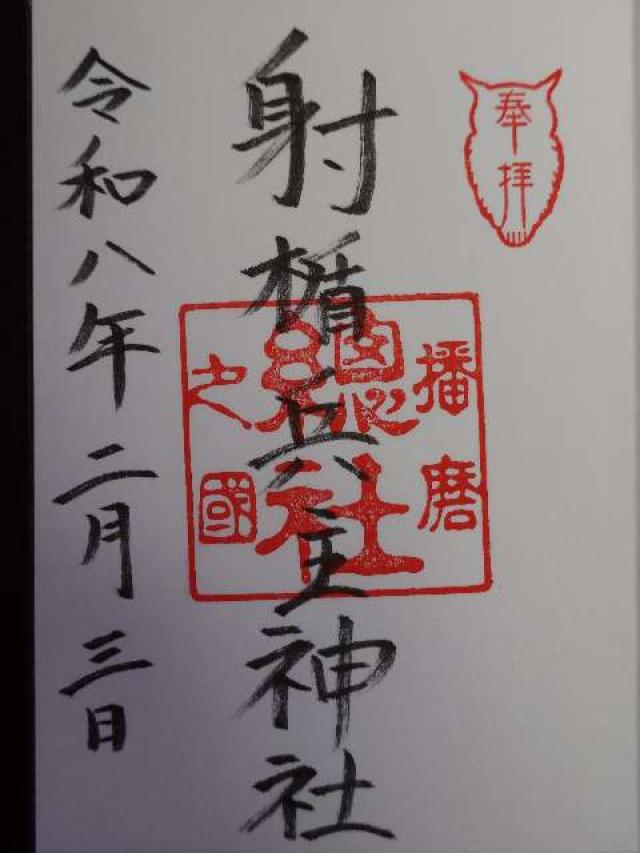 奉拝
射楯兵主神社
播磨
總社
之國
令和八年二月三日